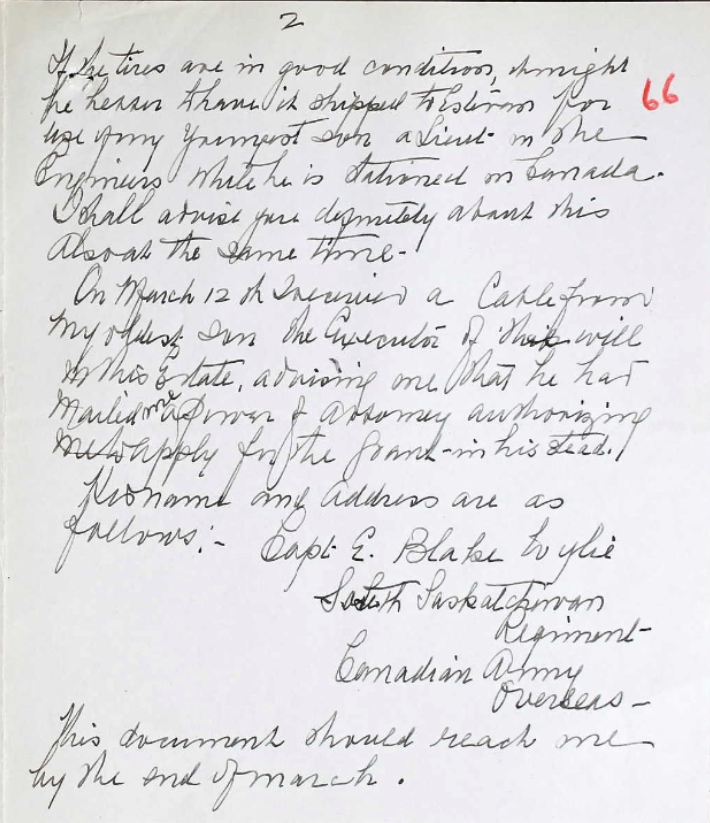 2
66
If the tires are in good condition, it might
be better to have it shipped to Estevan for
use of my youngest son a Lieut- in the
Engineers while he is stationed in Canada.
I shall advise you definitely about this
also at the same time-
On March 12th I received a Cable from
my oldest son the Executor of the will
in this Estate, advising me that he had
mailed me a Power of Attorney authorizing
me to apply for the Grant- in his stead.
His name and address are as
follows:-
Capt. E. Blake Wylie
South Saskatchewan
Regiment-
Canadian Army
Overseas-
This document should reach me
by the end of march.